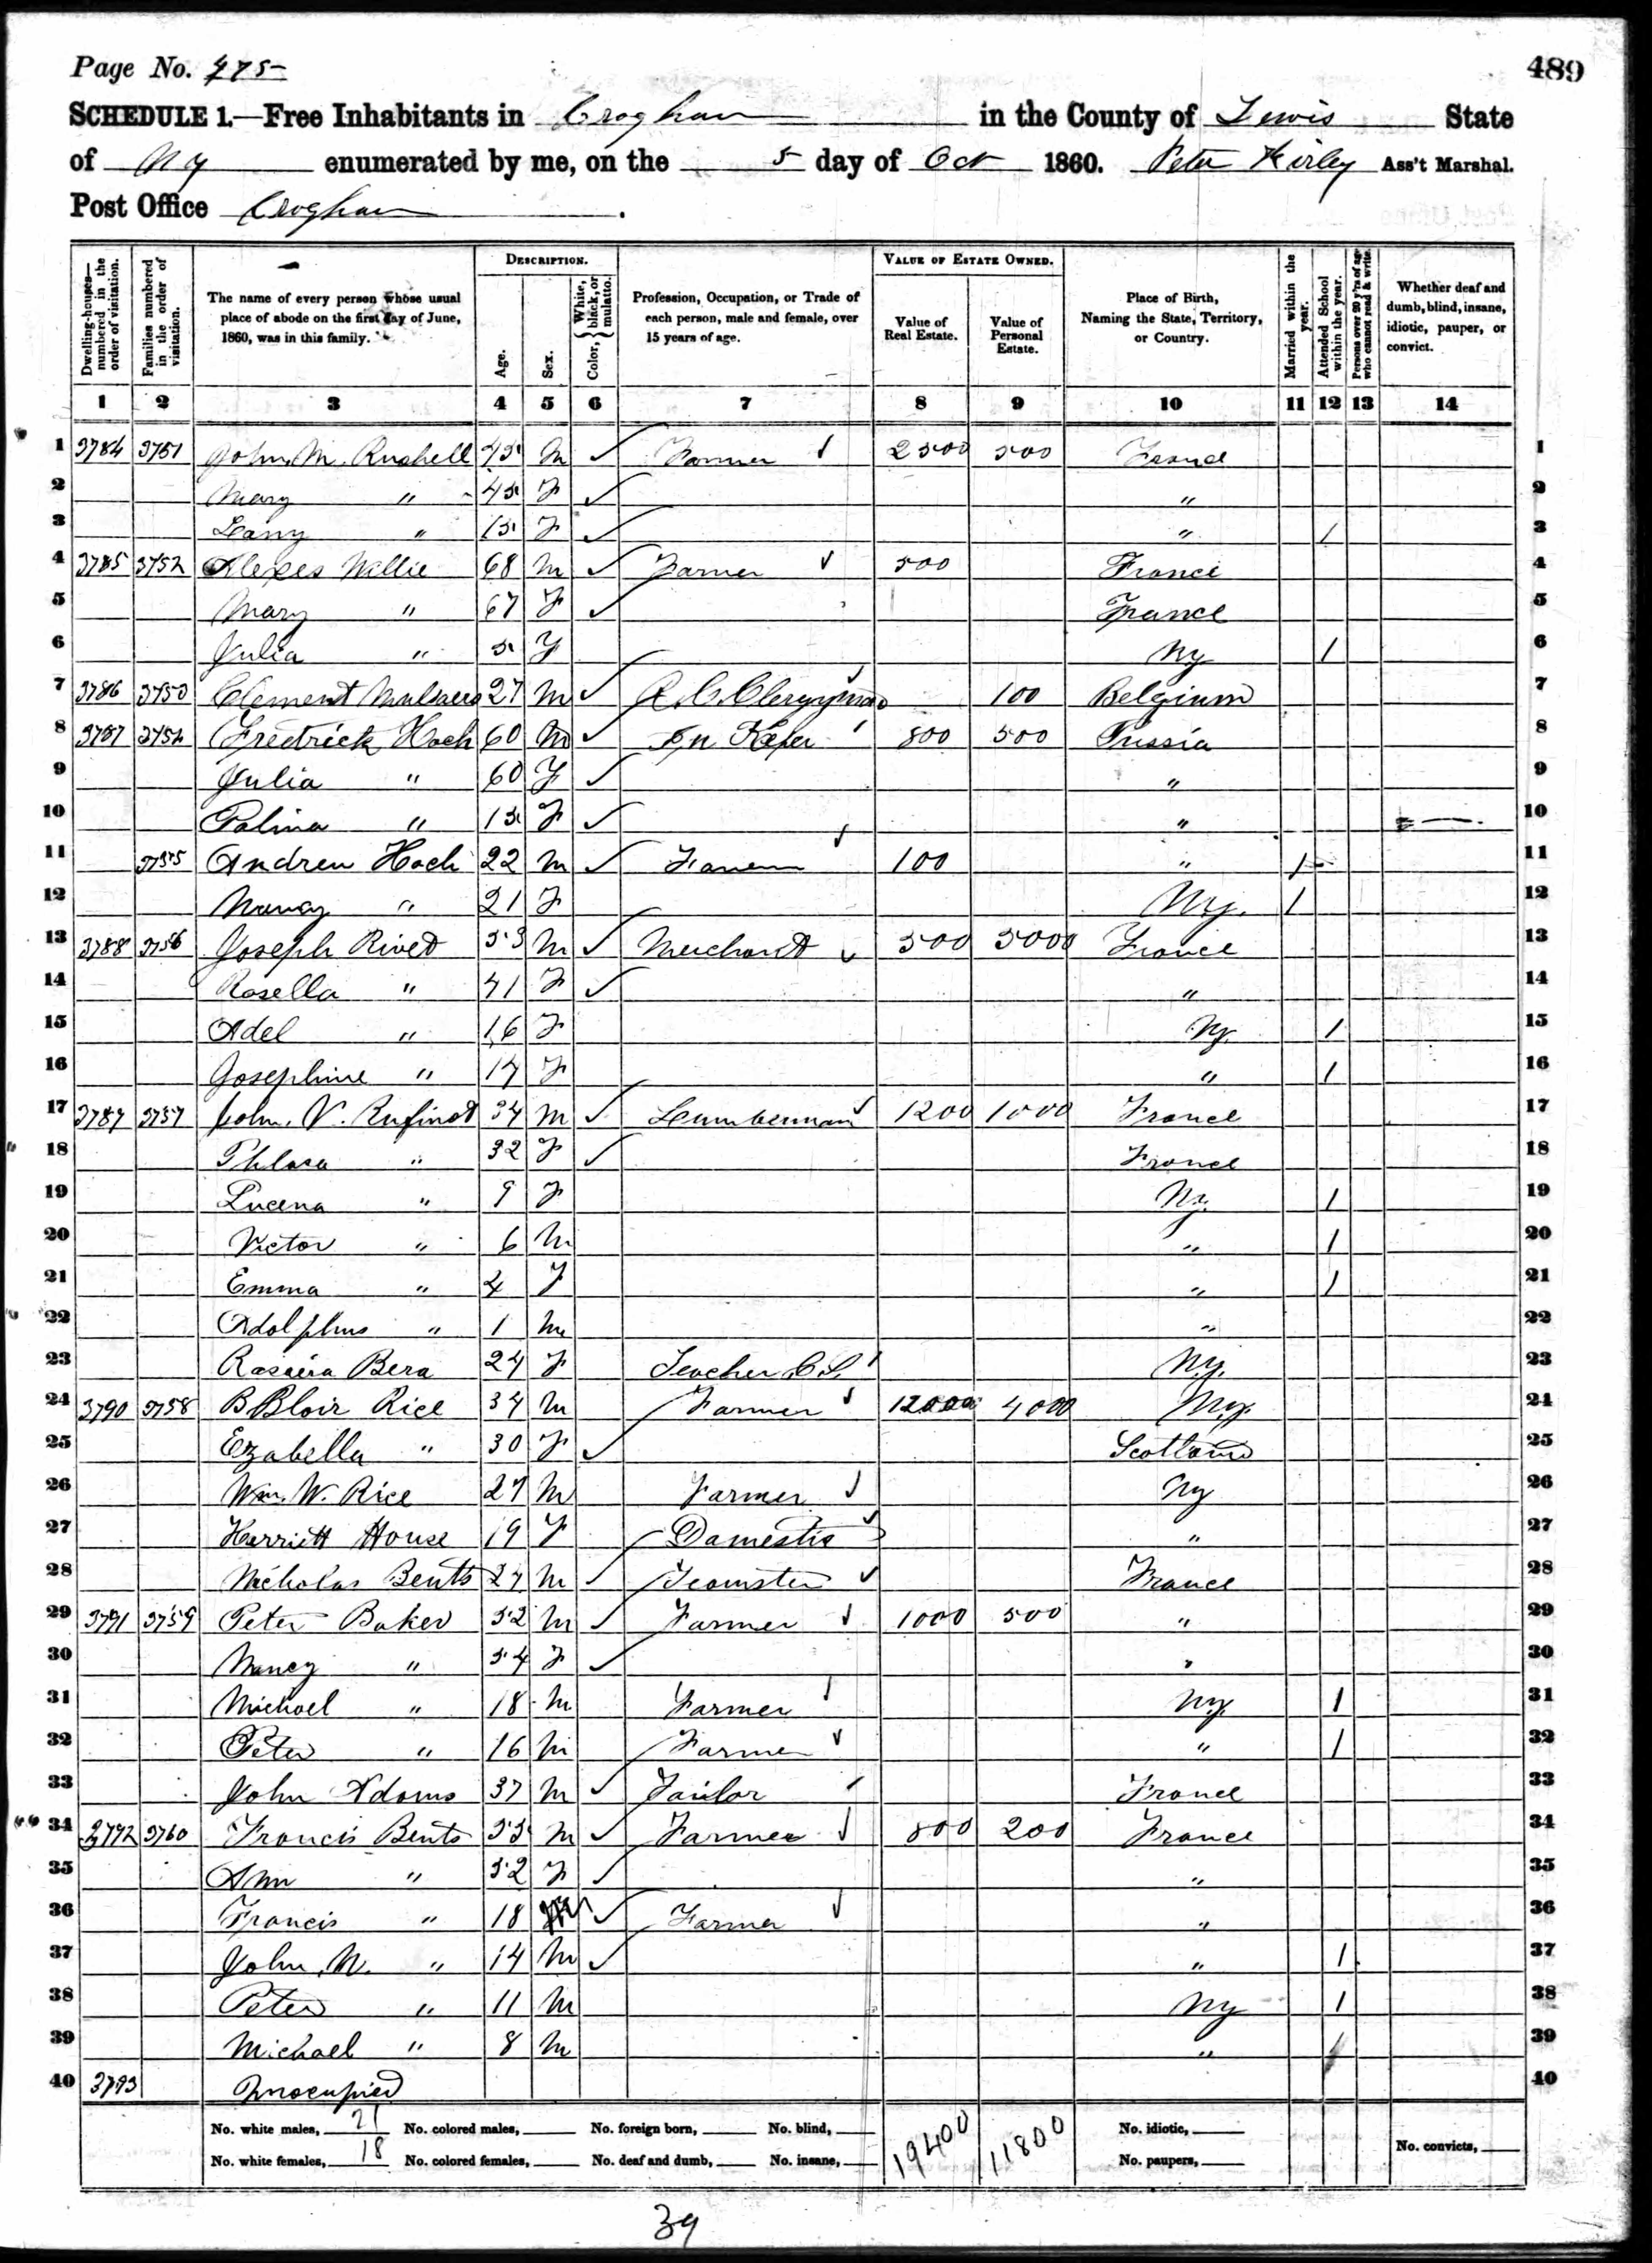 Page No. 475
489
SCHEDULE 1.—Free Inhabitants in Croghan in the County of Lewis State
of NY enumerated by me, on the 5 day of Oct 1860. Peter Kirley Ass't Marshal.
Post Office Croghan.
Dwelling-houses—numbered in the order of visitation.
Families numbered in the order of visitation.
The name of every person whose usual place of abode on the first day of June, 1860, was in this family.
DESCRIPTION.
Age.
Sex.
Color, { White, black, or mulatto.
Profession, Occupation, or Trade of each person, male and female, over 15 years of age.
VALUE OF ESTATE OWNED.
Value of Real Estate.
Value of Personal Estate.
Place of Birth, Naming the State, Territory, or Country.
Married within the year.
Attended School within the year.
Persons over 20 y'rs of age who cannot read & write.
Whether deaf and dumb, blind, insane, idiotic, pauper, or convict.
1 2 3 4 5 6 7 8 9 10 11 12 13 14
1 3784 3751 John M. Rushell 45 M ✓ Farmer 2500 500 France 1
2 Mary " 45 F ✓ " 2
3 " 15 F ✓ " / 3
4 3785 3752 Alexes 68 M ✓ Farmer 500 France 4
5 Mary " 67 F ✓ France 5
6 Julia " 5 F Ny / 6
7 3786 3753 Clement 27 M ✓ R.C. Clergyman 100 Belgium 7
8 3787 3754 Fredrick Hoch 60 M ✓ Inn Keper 800 500 Prussia 8
9 Julia " 60 F ✓ " 9
10 Palina " 15 F ✓ " 10
11 3755 Andrew Hoch 22 M ✓ 100 " / 11
12 Nancy " 21 F Ny. / 12
13 3788 3756 Joseph Rivet 53 M ✓ Merchant 500 5000 France 13
14 Rosella " 41 F ✓ " 14
15 Adel " 16 F Ny. / 15
16 Josephine " 14 F " / 16
17 3789 3757 John. V. Rufinot 34 M ✓ Lumberman 1200 1000 France 17
18 " 32 F ✓ France 18
19 Lucena " 9 F Ny. / 19
20 Victor " 6 M " / 20
21 Emma " 4 F " / 21
22 Adolphus " 1 M " 22
23 Bera 24 F Teacher C.S. Ny. 23
24 3790 3758 B Blair Rice 34 M Farmer 12000 4000 Ny. 24
25 Ezabella " 30 F ✓ Scotland 25
26 Wm. W. Rice 27 M Farmer Ny 26
27 Harriett House 19 F Domestic " 27
28 Nicholas Bents 24 M ✓ Teamster France 28
29 3791 3759 Peter Baker 52 M ✓ Farmer 1000 500 " 29
30 Nancy " 54 F ✓ " 30
31 Michael " 18 M Farmer Ny. / 31
32 Peter " 16 M Farmer " / 32
33 John Adams 37 M ✓ Tailor France 33
34 3792 3760 Francis Bents 55 M ✓ Farmer 800 200 France 34
35 Ann " 52 F ✓ " 35
36 Francis " 18 M ✓ Farmer " 36
37 John, N. " 14 M ✓ " / 37
38 Peter " 11 M Ny / 38
39 Michael " 8 M " / 39
40 3793 Unocupied 40
No. white males, 21 No. colored males, No. foreign born, No. blind, 19400 11800 No. idiotic,
No. white females, 18 No. colored females, No. deaf and dumb, No. insane, No. paupers, No. convicts,
39